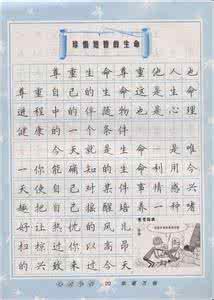 珍惜短暂的生命
尊重生命尊重他人也
尊重自己的生命也是生命
进程中的伴随物也是心理
健康的一个条件
今天就是生命是唯
一你能确知的生命利用今
天使自己对某件事情感兴
趣把自己摇醒培养一种
好让热忱的风
的兴致来过今天
20